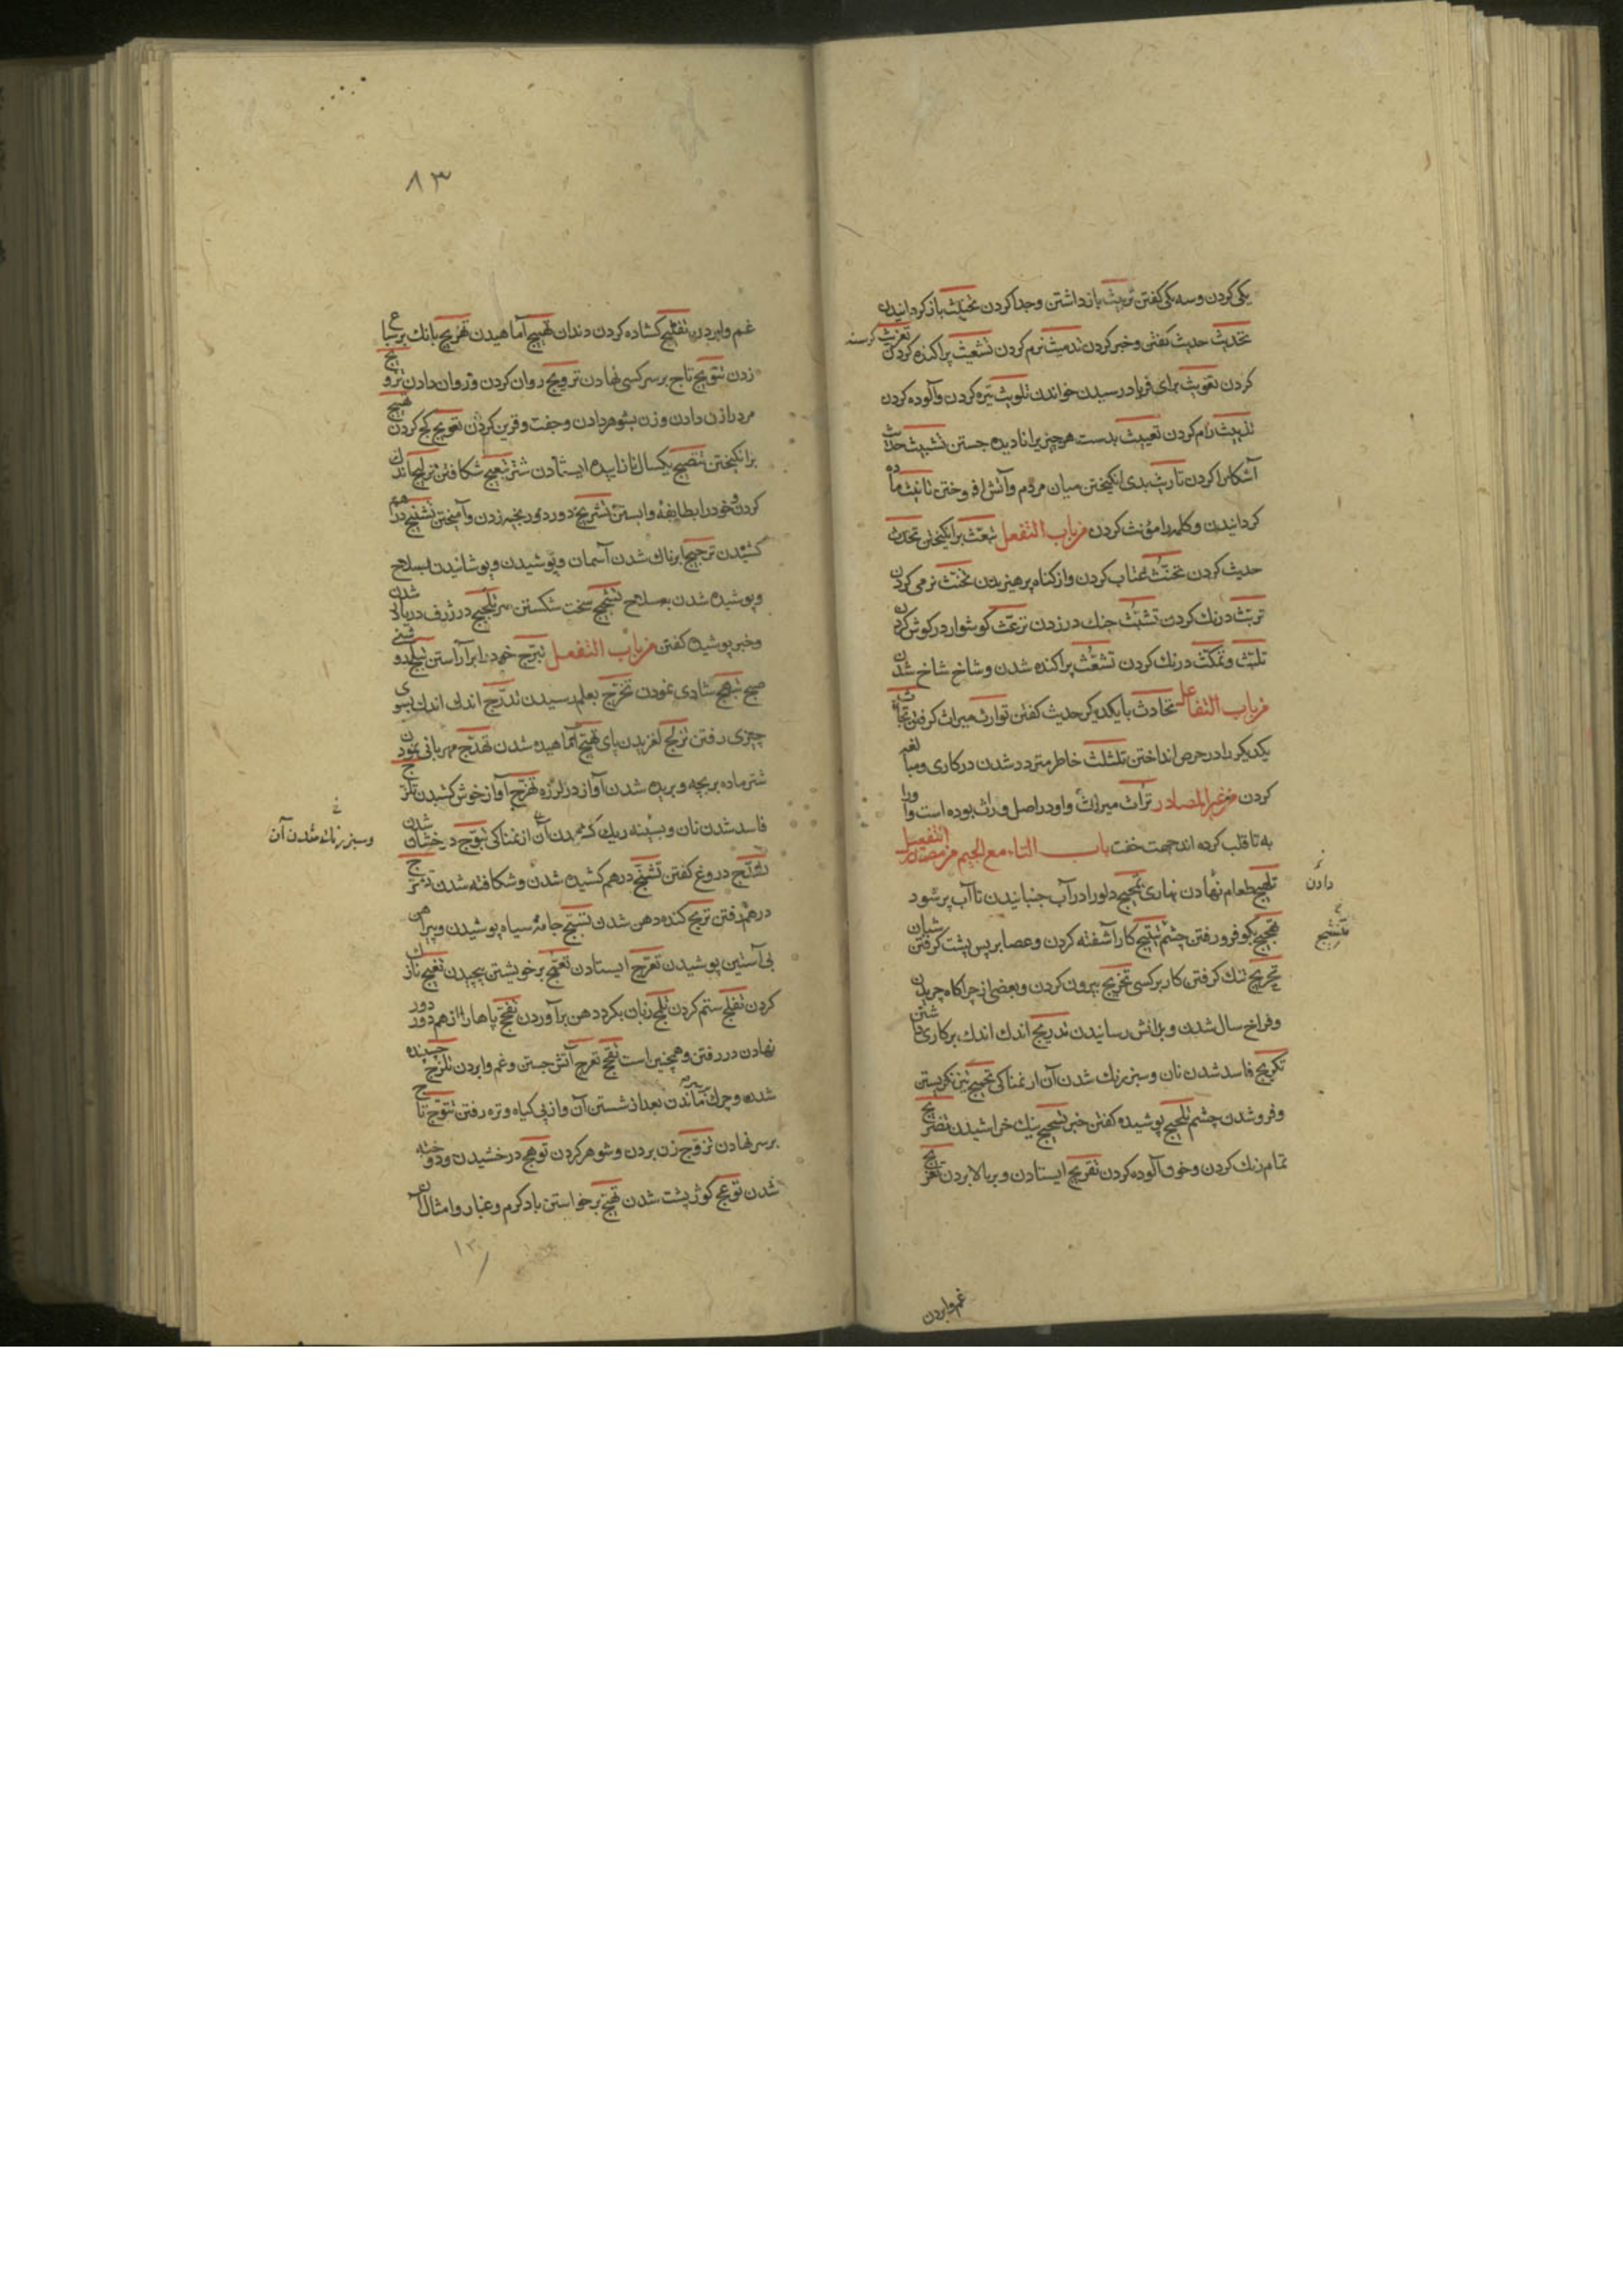 یکی کردن و سه یکی گفتن تربیث بازداشتن وجدا کردن تخییث باز کردانیدن
تحدیث حدیث گفتن وخبر کردن تدمیث نرم کردن تشعیث پراکنده کردن تغریث کرسنه
کردن تغویث برای فریاد رسیدن خواندن تلویث تیره کردن وآلوده کردن
تدییث رام کردن تعییث بدست هر چیز یرا نادیده جستن
آشکارا کردن تاریث بدی انکیختن میان مردم وآتش افروختن تانیث ماده
کردانیدن و کلمه را مؤنث کردن مزباب التفعل تبعّث برانکیختن تحدث
حدیث کردن تحنّث عتاب کردن واز کناه پرهیزیدن تخنّث نرمی کردن
تربّث درنك کردن تشبّث چنك در زدن ترعّث کوشوار در کوش کردن
تلبّث وتمکّث درنك کردن تشعّث پراکنده شدن وشاخ شاخ شدن
مزباب التفاعل تحادث با یکدیکر حدیث کفتن توارث میراث کرفتن
یکدیکر را در حرص انداختن تلثلث خاطر متردد شدن در کاری ومبالغه
کردن مزغیر المصادر تراث میراث واو در اصل وراث بوده است واو را
به تا قلب کرده اند جهت خفت باب التاء مع الجیم مزمصادر التفعیل
تلهیج طعام نهادن نهاری تمجیج دلو را در آب جنبانیدن تا آب پر شود
دادن
تهجیج بکو فرو رفتن چشم تثبیج کار آشفته کردن وعصا بر پس پشت کرفتن شبان
تشنیج
تحریج تنك کرفتن کار بر کسی تخریج بیرون کردن وبعضی از چراکاه چریدن
وفراخ سال شدن وبدانش رسانیدن تدریج اندك اندك بر کاری داشتن
تکریج فاسد شدن نان وسبز رنك شدن آن از نمناکی تحمیج تیز نکریستن
وفرو شدن چشم تلحیج پوشیده کفتن خبر تسحیج نیك خراشیدن تضریج
تمام رنك کردن وخون آلوده کردن تعریج ایستادن وبر بالا بردن تفریج
غم وابردن
٨٣
غم وابردن تفلیج کشاده کردن دندان تهبیج آماهیدن تهریج بانك بر سباع
زدن تتویج تاج بر سر کسی نهادن ترویج روان کردن وروان دادن تزویج
مرد را زن دادن وزن بشوهر دادن وجفت وقرین کردن تعویج کج کردن تهییج
برانکیختن تنضیج یکسال نازاییده ایستادن شتر تبعیج شکافتن تزلیج اندك
کردن وخود را بطایفه وابستن تشریج دور دور بخیه زدن وآمیختن تشنیج درهم
کشیدن ترجیج ابرناك شدن آسمان وپوشیدن وپوشانیدن بسلاح
وپوشیده شدن بسلاح تشجیج سخت شکستن سر تلجیج در ژرف دریا شدن
وخبر پوشیده کفتن مزباب التفعل تبرّج خود را برآراستن تبلّج روشنی
صبح تبهّج شادی نمودن تخرّج بعلم رسیدن تدرّج اندك اندك بسوی
چیزی رفتن تزلّج لغزیدن پای تهبّج آماهیده شدن تهدّج مهربانی نمودن
شتر ماده بر بچه وبریده شدن آواز در لرزه تهزّج آواز خوش کشیدن تکرّج
فاسد شدن نان از نمناکی تبوّج درخشان شدن
وسبز رنك شدن آن
دروغ کفتن تشنّج درهم کشیده شدن وشکافته شدن
درهم رفتن کنده دهن شدن تسبّج جامه سیاه پوشیدن وپیراهن
بی آستین پوشیدن تعرّج ایستادن تعمّج بر خویشتن پیچیدن تغنّج ناز
کردن ستم کردن تلمّج زبان بکرد دهن برآوردن تفحّج پاها را از هم دور
نهادن در رفتن وهمچنین است تفجّج تفرّج آتش جستن وغم وابردن تلزّج چسبنده
شدن وچرك ماندن بعد از شستن آن واز پی کیاه وتره رفتن تتوّج تاج
بر سر نهادن تزوّج زن بردن وشوهر کردن توهّج درخشیدن
شدن تعوّج کوژ پشت شدن تهیّج برخواستن باد کرم وغبار وامثال آن
١٣